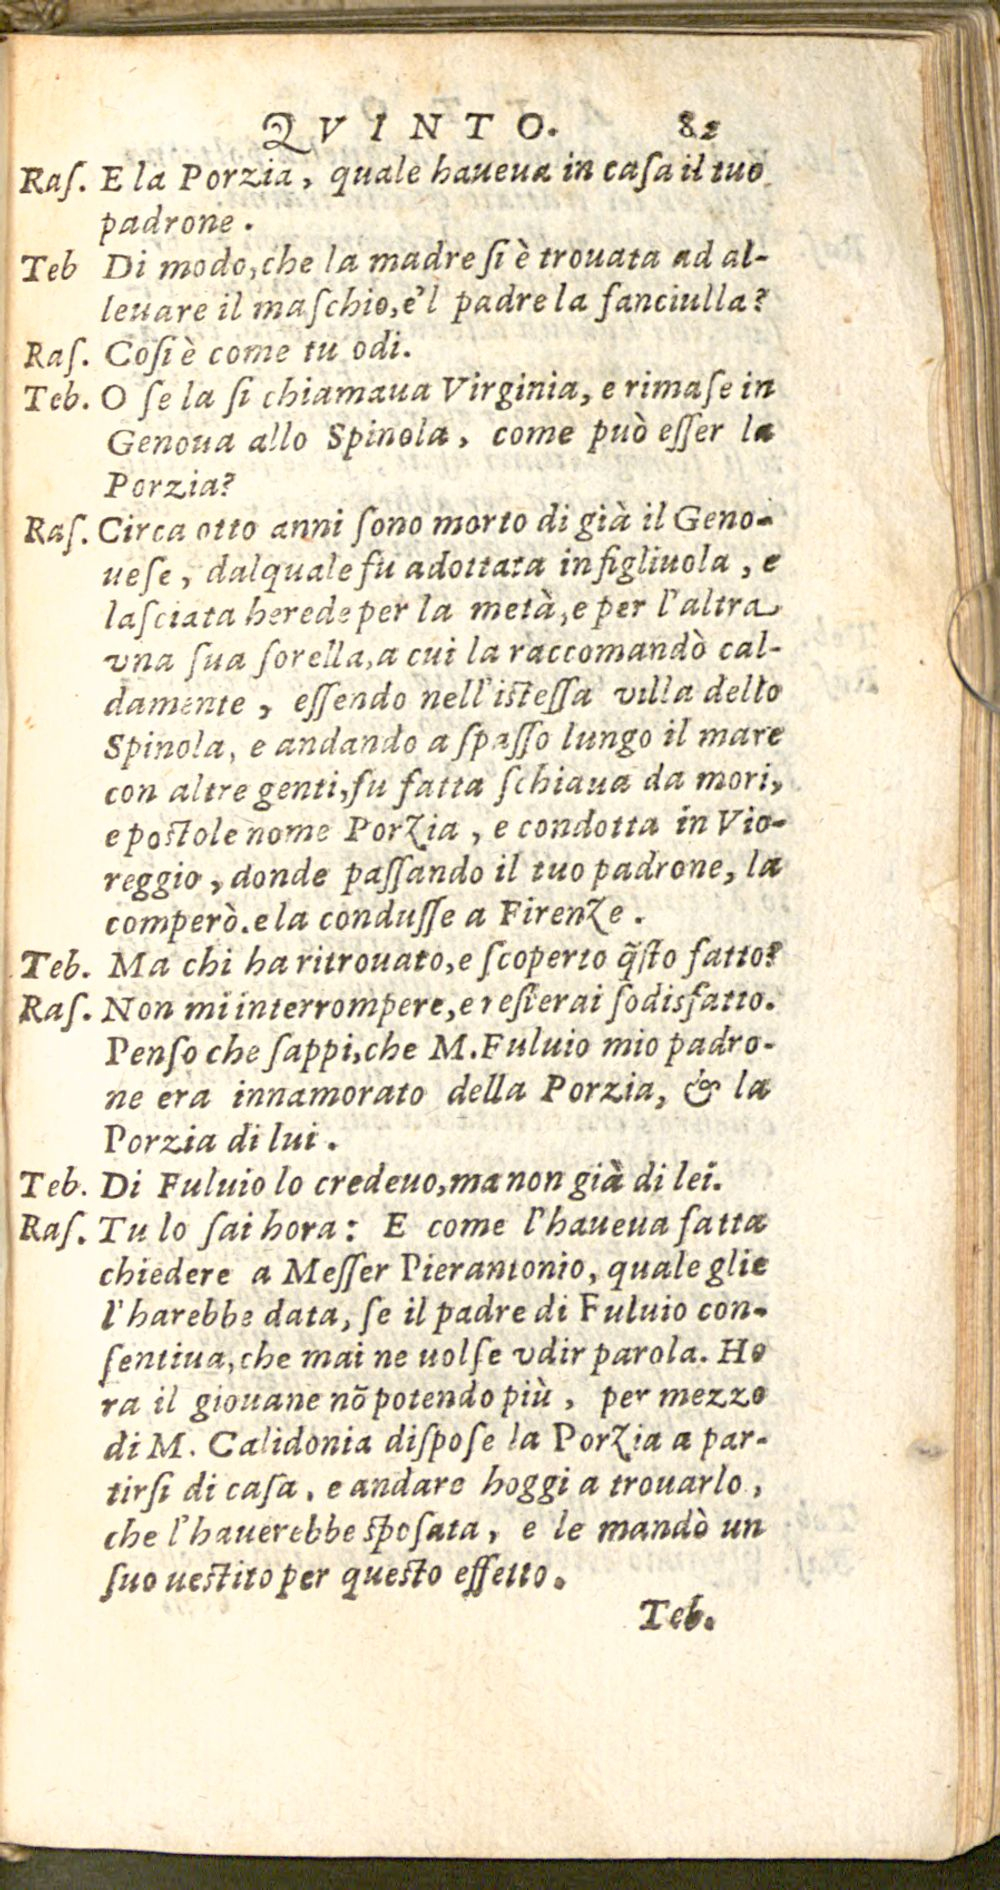 QVINTO. 82
Raſ. E la Porzia, quale haueua in caſa il tuo
padrone.
Teb Di modo, che la madre ſi è trouata ad al-
leuare il maſchio, e'l padre la fanciulla?
Raſ. Coſi è come tu odi.
Teb. O ſe la ſi chiamaua Virginia, e rimaſe in
Genoua allo Spinola, come può eſſer la
Porzia?
Raſ. Circa otto anni ſono morto di già il Geno-
ueſe, dalquale fu adottata in figliuola, e
laſciata herede per la metà, e per l'altra
vna ſua ſorella, a cui la raccomandò cal-
damente, eſſendo nell'isteſſa villa dello
Spinola, e andando a ſpaſſo lungo il mare
con altre genti, fu fatta ſchiaua da mori,
e postole nome Porzia, e condotta in Vio-
reggio, donde paſſando il tuo padrone, la
comperò. e la conduſſe a Firenze.
Teb. Ma chi ha ritrouato, e ſcoperto q̃ſto fatto?
Raſ. Non mi interrompere, e resterai ſodisfatto.
Penſo che ſappi, che M. Fuluio mio padro-
ne era innamorato della Porzia, & la
Porzia di lui.
Teb. Di Fuluio lo credeuo, ma non già di lei.
Raſ. Tu lo ſai hora: E come l'haueua fatta
chiedere a Meſſer Pierantonio, quale glie
l'harebbe data, ſe il padre di Fuluio con-
ſentiua, che mai ne uolſe vdir parola. Ho
ra il giouane nõ potendo più, per mezzo
di M. Calidonia diſpoſe la Porzia a par-
tirſi di caſa, e andare hoggi a trouarlo,
che l'hauerebbe spoſata, e le mandò un
ſuo uestito per questo effetto.
Teb.